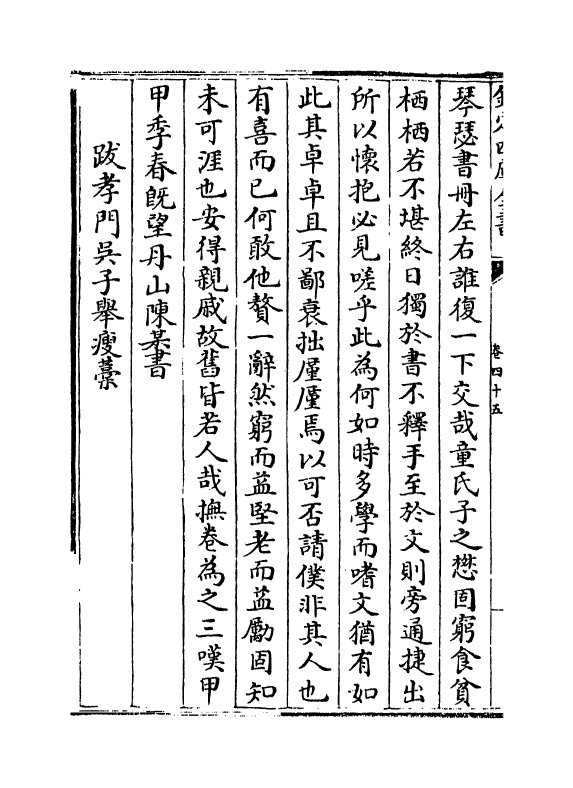 欽定四庫全書
卷四十五
琴瑟書冊左右誰復一下交哉童氏子之懋固窮食貧
栖栖若不堪終日獨於書不釋手至於文則旁通捷出
所以懷抱必見嗟乎此為何如時多學而嗜文猶有如
此其卓卓且不鄙衰拙屢屢焉以可否請僕非其人也
有喜而已何敢他贅一辭然窮而益堅老而益勵固知
未可涯也安得親戚故舊皆若人哉撫卷為之三嘆甲
甲季春旣望丹山陳某書
跋孝門吳子舉瘦藁